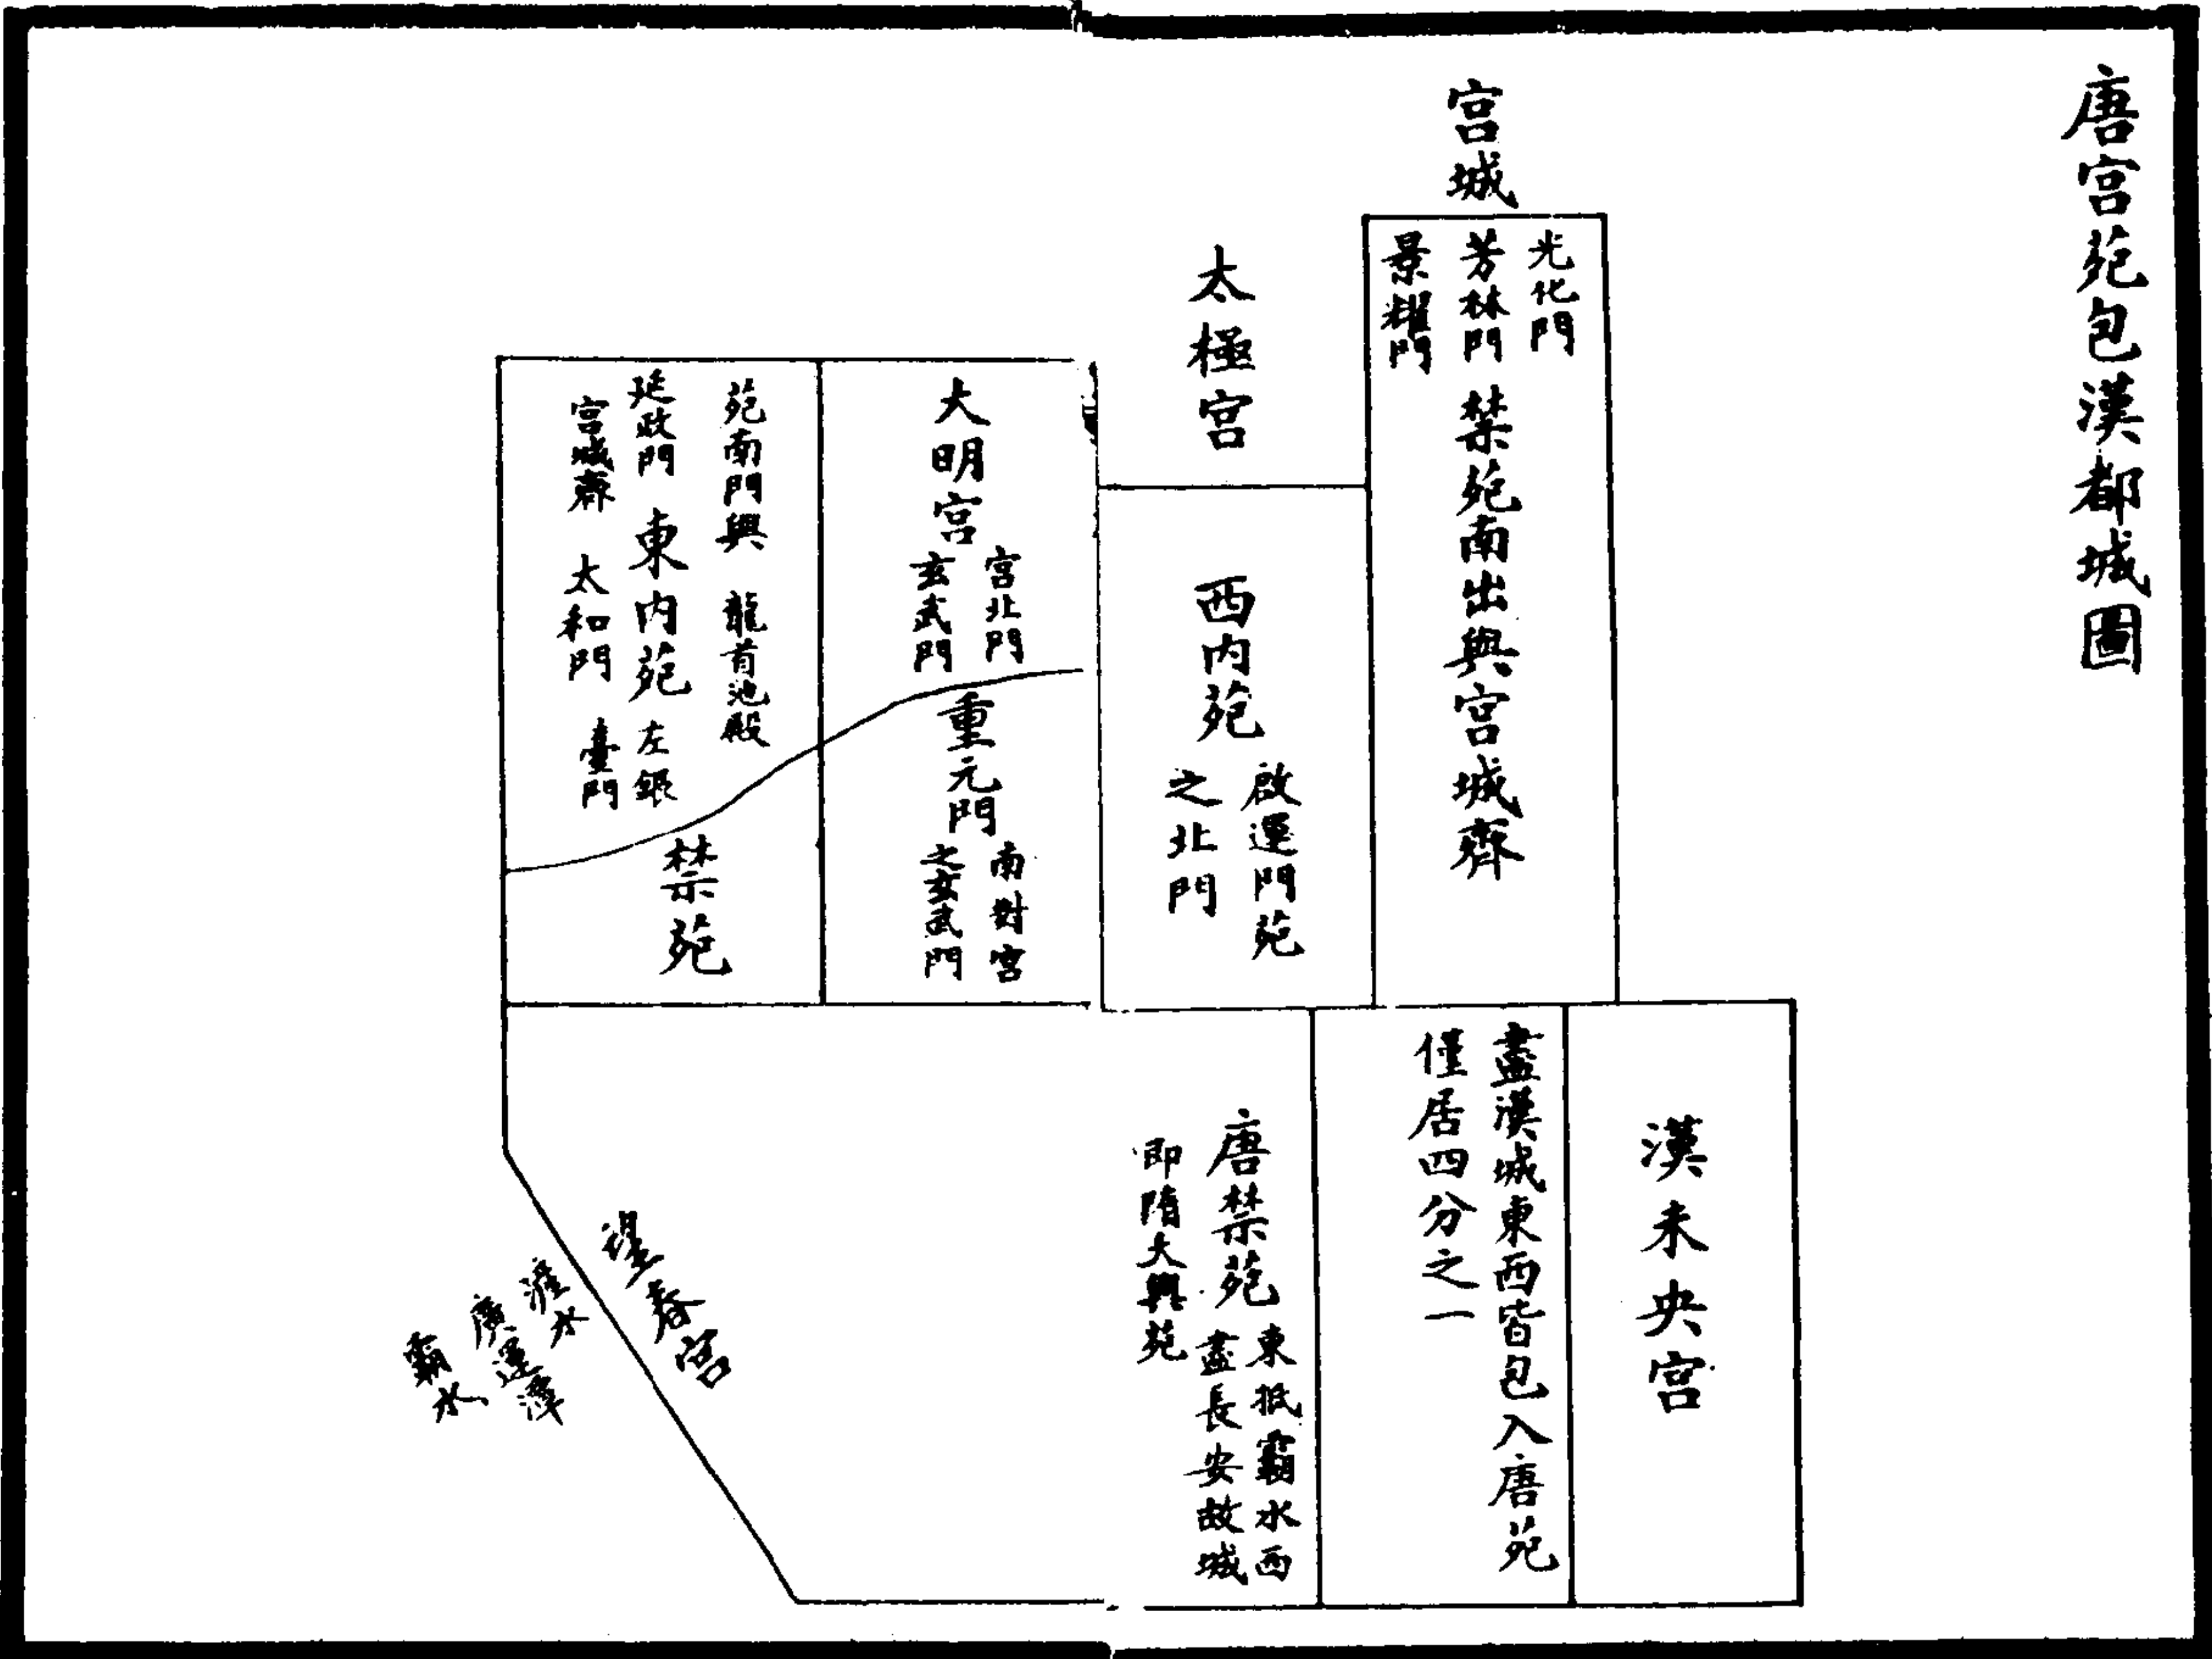 唐宮苑包漢都城圖
宮城
光化門
芳林門
景耀門
禁苑南出與宮城齊
太極宮
西內苑
啟運門苑
之北門
大明宮
宮北門
玄武門
重元門
南對宮
之玄武門
苑南門與
延政門
宮城齊
東內苑
龍首池殿
太和門
左銀
臺門
禁苑
漢未央宮
盡漢城東西皆包入唐苑
僅居四分之一
唐禁苑
東抵霸水西
盡長安故城
即隋大興苑
滻水
廣運潭
霸水